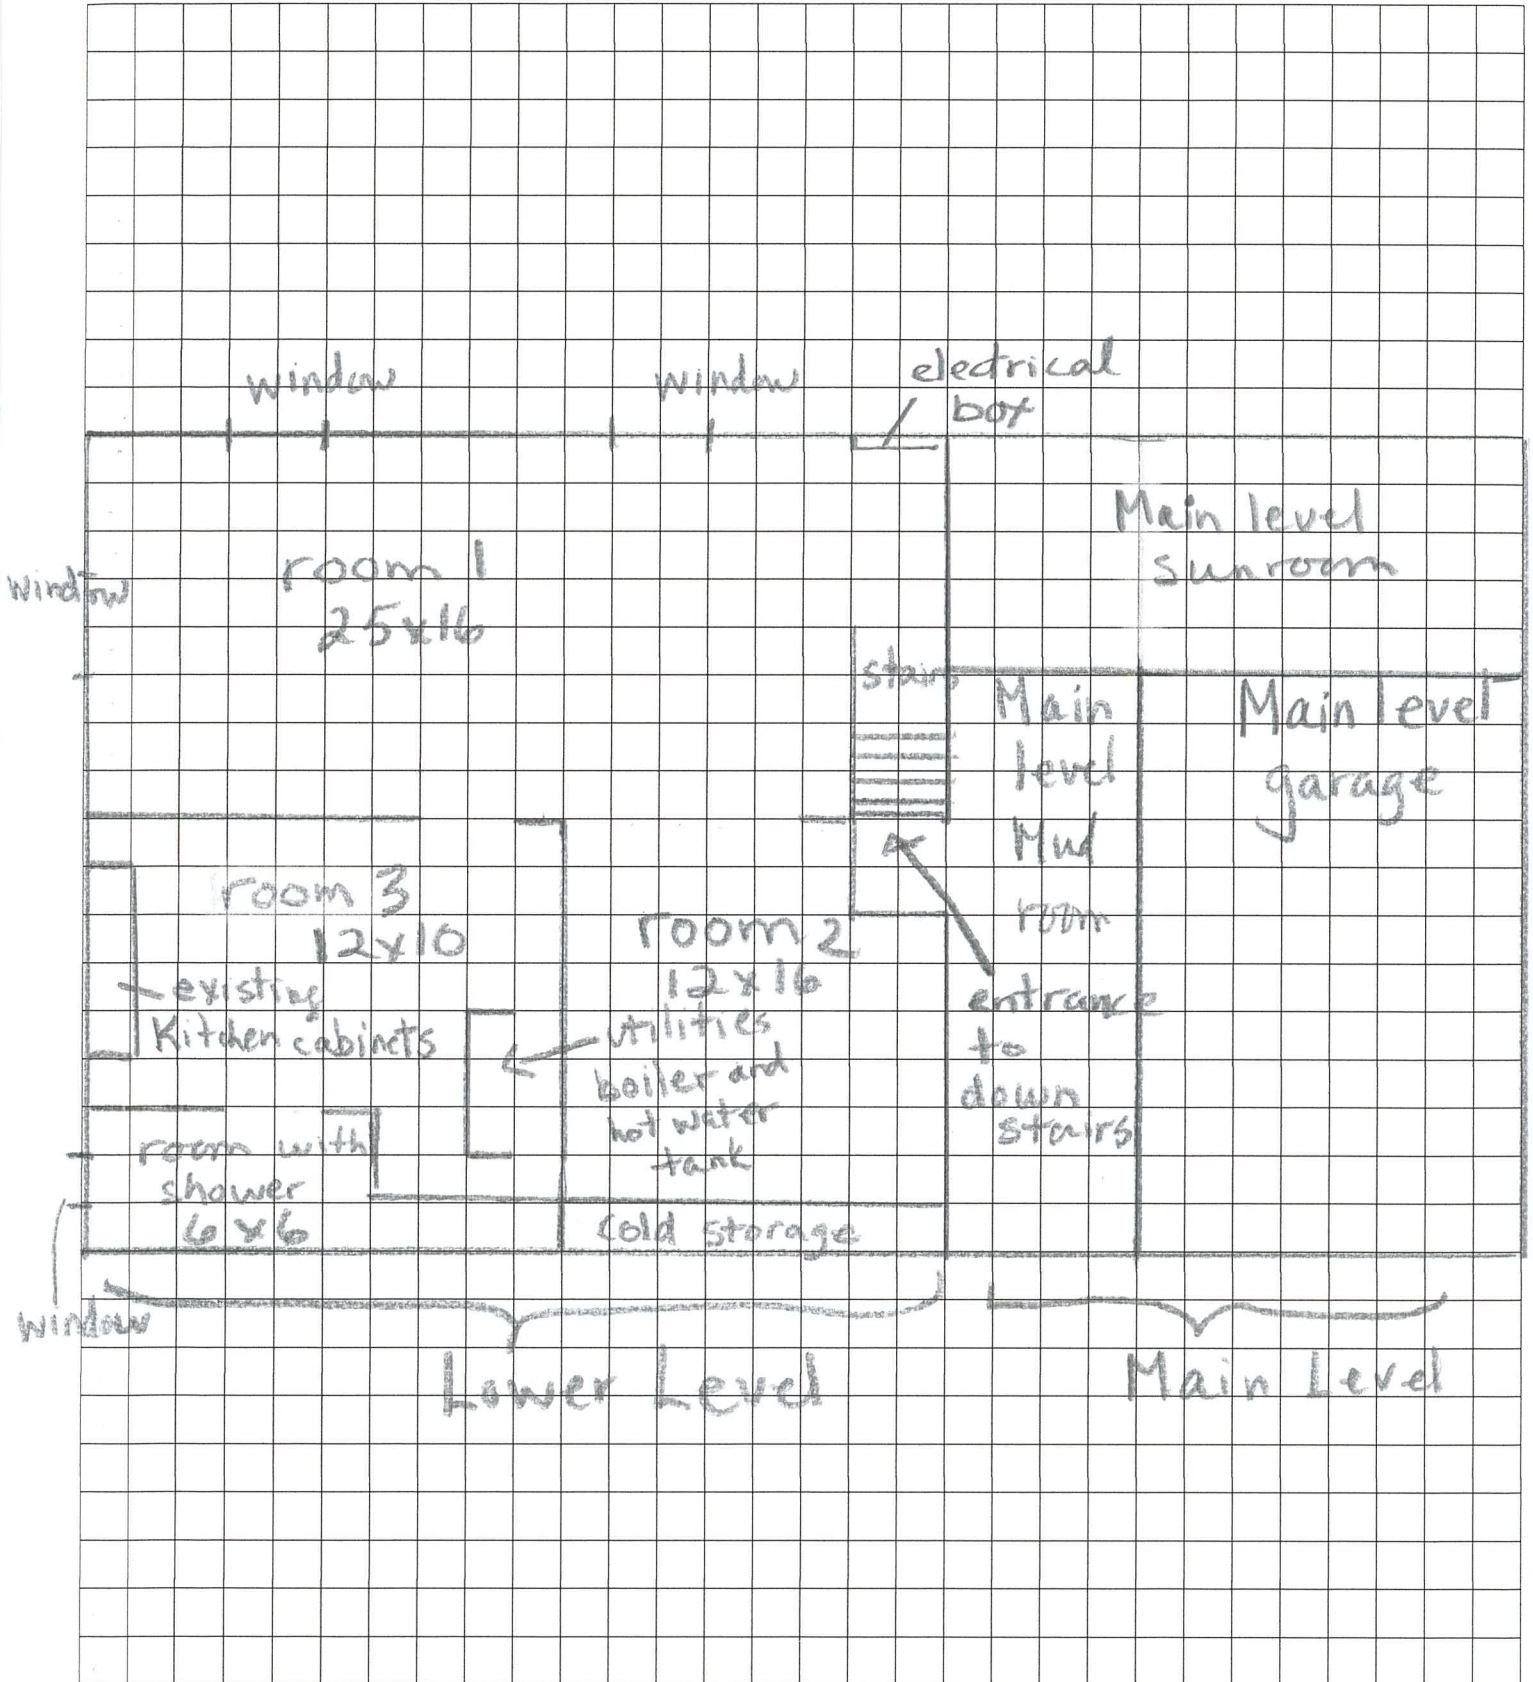 window
window
electrical
box
Main level
sunroom
room 1
25x16
window
stairs
Main
level
Mud
room
Main level
garage
room 3
12x10
existing
Kitchen cabinets
room 2
12x16
utilities
boiler and
hot water
tank
entrance
to
down
stairs
room with
shower
6x6
cold storage
window
Lower Level
Main Level